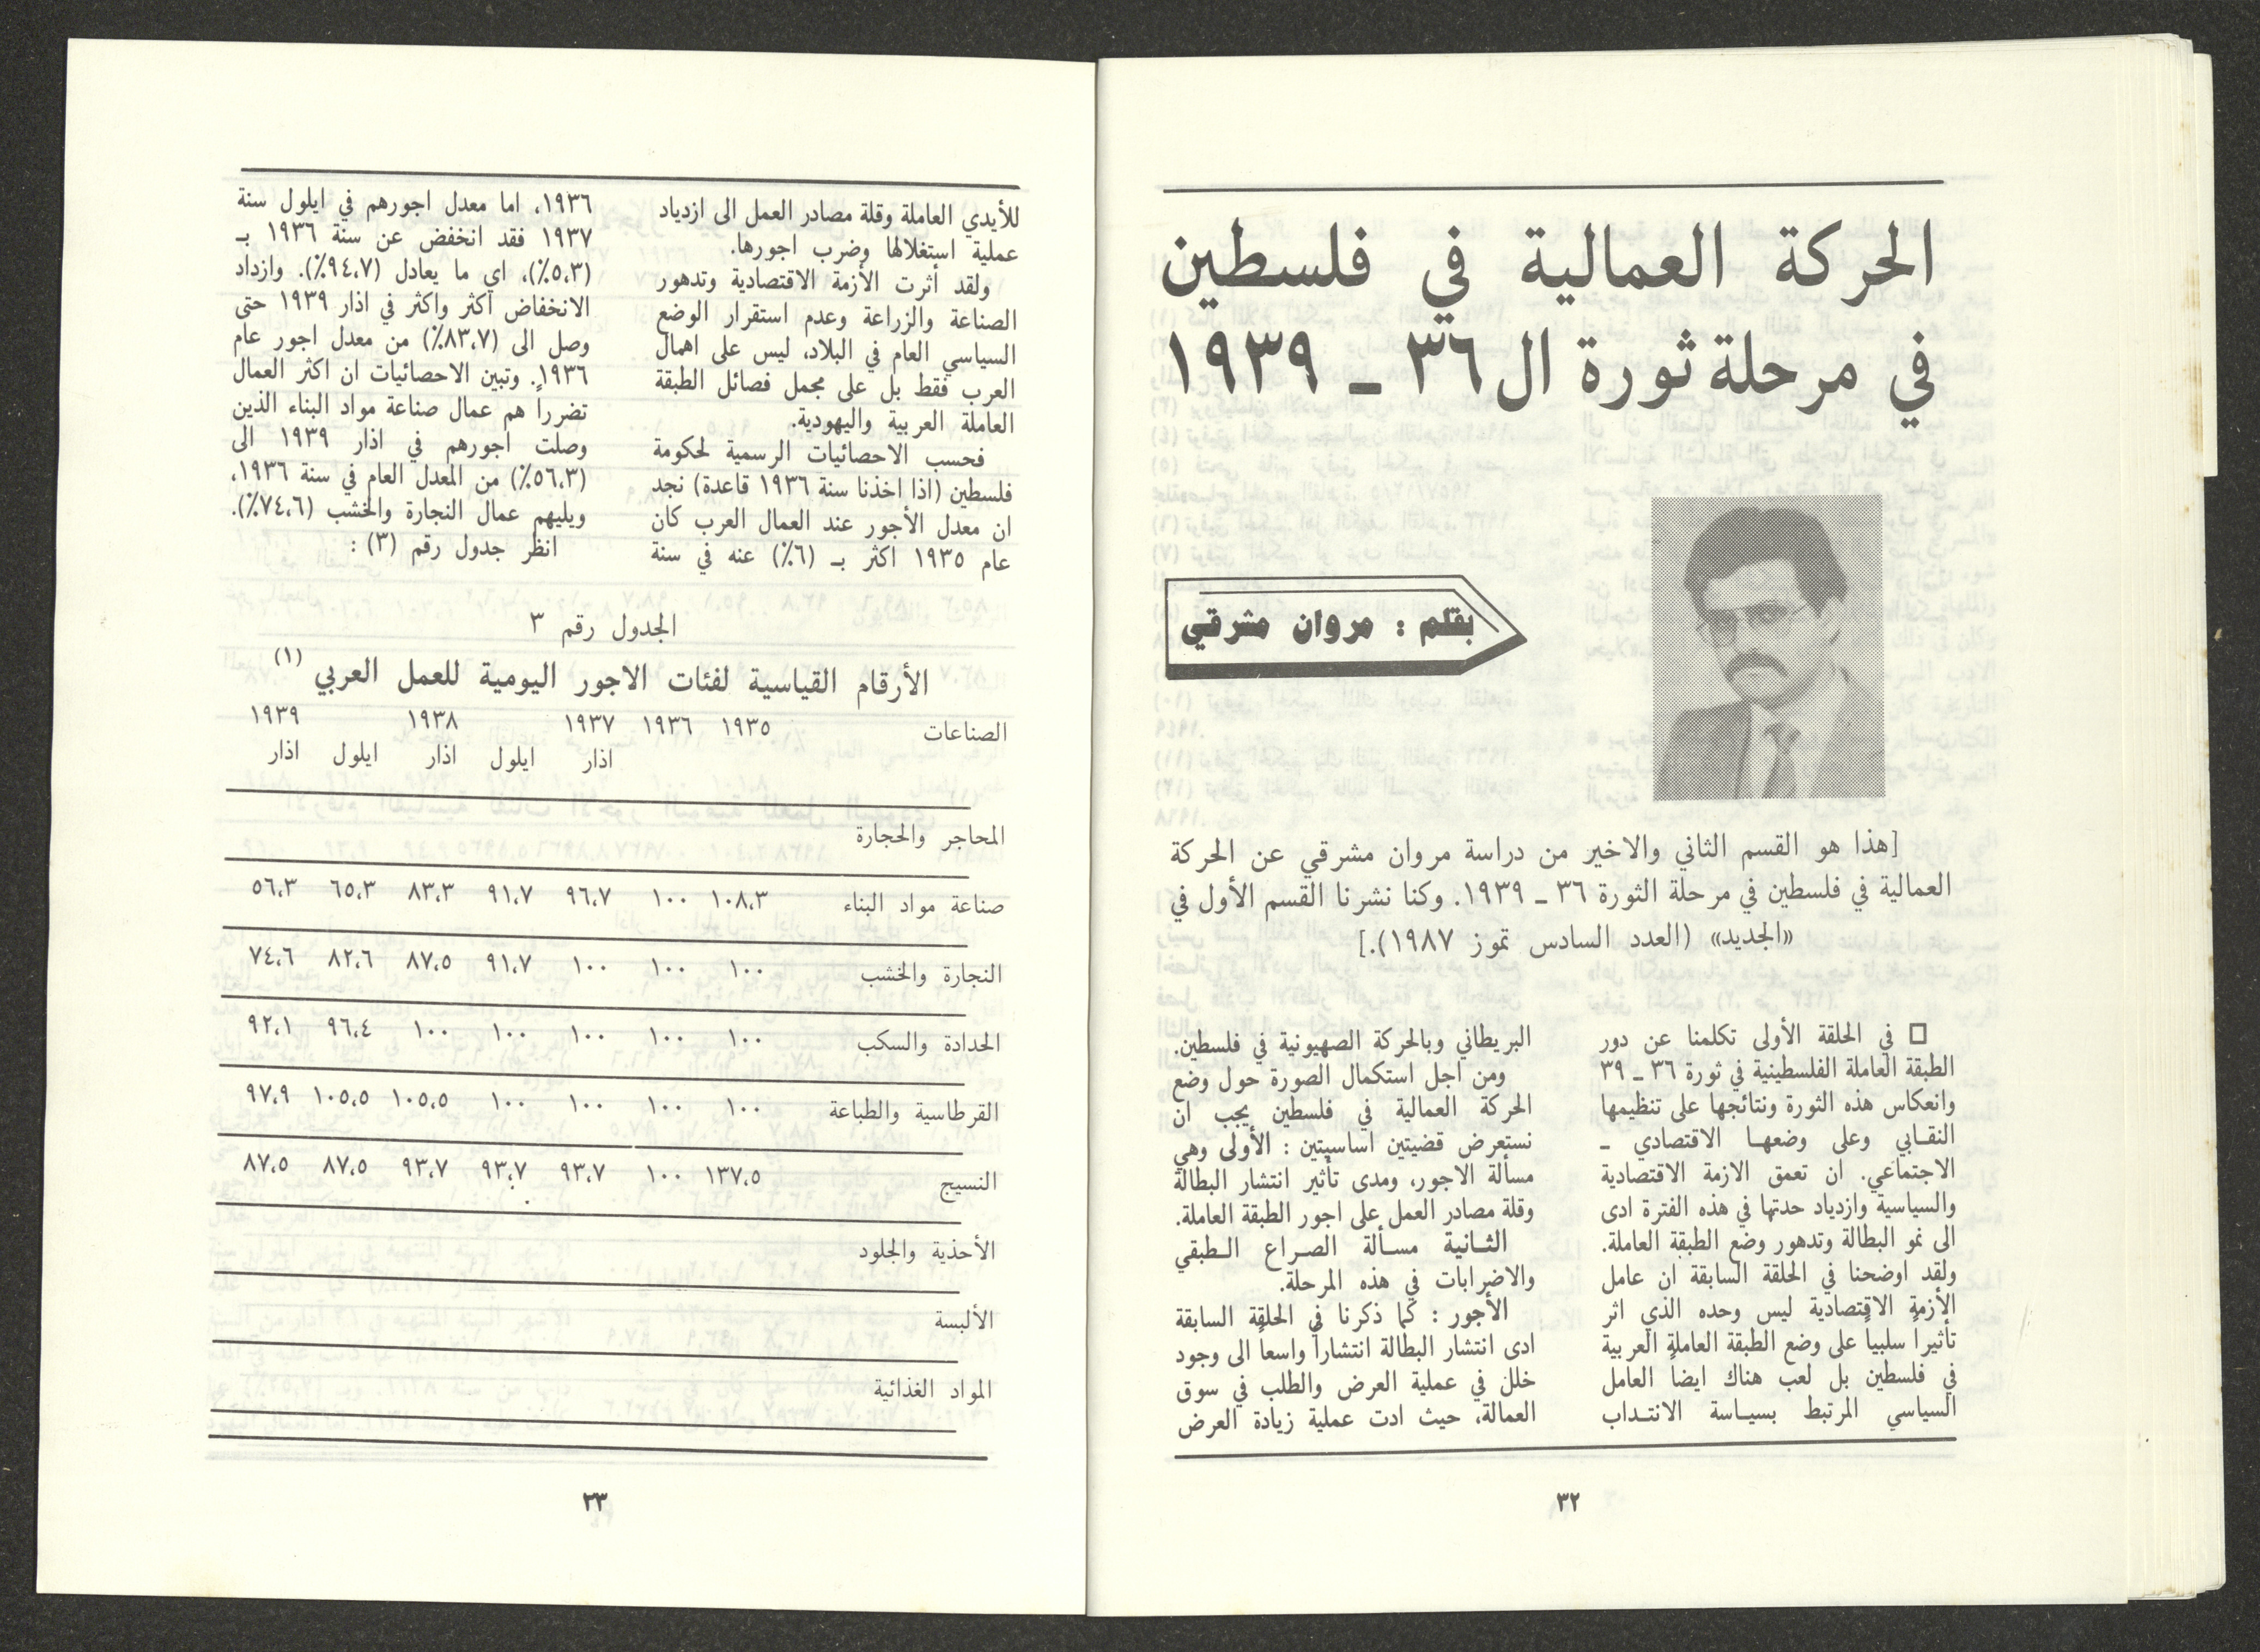 الحركة العمالية في فلسطين
في مرحلة ثورة ال ٣٦ ـ ١٩٣٩
بقلم : مروان مشرقي
[هذا هو القسم الثاني والاخير من دراسة مروان مشرقي عن الحركة
العمالية في فلسطين في مرحلة الثورة ٣٦ ـ ١٩٣٩. وكنا نشرنا القسم الأول في
«الجديد» (العدد السادس تموز ١٩٨٧).]
□ في الحلقة الأولى تكلمنا عن دور
الطبقة العاملة الفلسطينية في ثورة ٣٦ ـ ٣٩
وانعكاس هذه الثورة ونتائجها على تنظيمها
النقابي وعلى وضعها الاقتصادي ـ
الاجتماعي. ان تعمق الازمة الاقتصادية
والسياسية وازدياد حدتها في هذه الفترة ادى
الى نمو البطالة وتدهور وضع الطبقة العاملة.
ولقد اوضحنا في الحلقة السابقة ان عامل
الأزمة الاقتصادية ليس وحده الذي اثر
تأثيراً سلبياً على وضع الطبقة العاملة العربية
في فلسطين بل لعب هناك ايضاً العامل
السياسي المرتبط بسياسة الانتداب
البريطاني وبالحركة الصهيونية في فلسطين.
ومن اجل استكمال الصورة حول وضع
الحركة العمالية في فلسطين يجب ان
نستعرض قضيتين اساسيتين : الأولى وهي
مسألة الاجور، ومدى تأثير انتشار البطالة
وقلة مصادر العمل على اجور الطبقة العاملة.
الثانية مسألة الصراع الطبقي
والاضرابات في هذه المرحلة.
الأجور : كما ذكرنا في الحلقة السابقة
ادى انتشار البطالة انتشاراً واسعاً الى وجود
خلل في عملية العرض والطلب في سوق
العمالة، حيث ادت عملية زيادة العرض
٣٢
للأيدي العاملة وقلة مصادر العمل الى ازدياد
عملية استغلالها وضرب اجورها.
ولقد أثرت الأزمة الاقتصادية وتدهور
الصناعة والزراعة وعدم استقرار الوضع
السياسي العام في البلاد، ليس على اهمال
العرب فقط بل على مجمل فصائل الطبقة
العاملة العربية واليهودية.
فحسب الاحصائيات الرسمية لحكومة
فلسطين (اذا اخذنا سنة ١٩٣٦ قاعدة) نجد
ان معدل الأجور عند العمال العرب كان
عام ١٩٣٥ اكثر بـ (٦٪) عنه في سنة
١٩٣٦، اما معدل اجورهم في ايلول سنة
١٩٣٧ فقد انخفض عن سنة ١٩٣٦ بـ
(٥،٣٪)، اي ما يعادل (٩٤،٧٪). وازداد
الانخفاض اكثر واكثر في اذار ١٩٣٩ حتى
وصل الى (٨٣،٧٪) من معدل اجور عام
١٩٣٦. وتبين الاحصائيات ان اكثر العمال
تضرراً هم عمال صناعة مواد البناء الذين
وصلت اجورهم في اذار ١٩٣٩ الى
(٥٦،٣٪) من المعدل العام في سنة ١٩٣٦،
ويليهم عمال النجارة والخشب (٧٤،٦٪).
انظر جدول رقم (٣) :
الجدول رقم ٣
الأرقام القياسية لفئات الاجور اليومية للعمل العربي (١)
الصناعات ١٩٣٥ ١٩٣٦ ١٩٣٧ ١٩٣٨ ١٩٣٩
اذار ايلول اذار ايلول اذار
المحاجر والحجارة
صناعة مواد البناء ١٠٨،٣ ١٠٠ ٩٦،٧ ٩١،٧ ٨٣،٣ ٦٥،٣ ٥٦،٣
النجارة والخشب ١٠٠ ١٠٠ ١٠٠ ٩١،٧ ٨٧،٥ ٨٢،٦ ٧٤،٦
الحدادة والسكب ١٠٠ ١٠٠ ١٠٠ ١٠٠ ١٠٠ ٩٦،٤ ٩٢،١
القرطاسية والطباعة ١٠٠ ١٠٠ ١٠٠ ١٠٠ ١٠٥،٥ ١٠٥،٥ ٩٧،٩
النسيج ١٣٧،٥ ١٠٠ ٩٣،٧ ٩٣،٧ ٩٣،٧ ٨٧،٥ ٨٧،٥
الأحذية والجلود
الألبسة
المواد الغذائية
٣٣